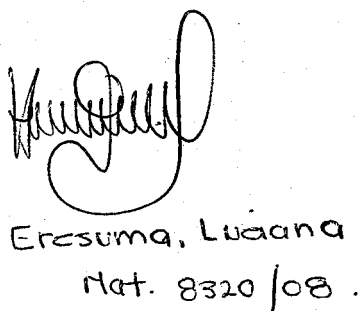 Eresuma, Luciana
Mat. 8320/08.